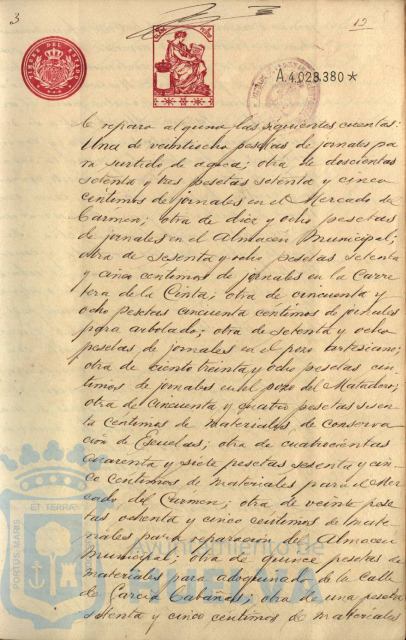 3
12
TIMBRE DEL ESTADO
A.4.028.380*
reparo alguno las siguientes cuentas:
Una de veintiocho pesetas de jornales pa
ra surtido de aguas; otra de doscientas
setenta y tres pesetas setenta y cinco
centimos de jornales en el Mercado del
Carmen; otra de diez y ocho pesetas
de jornales en el Almacen Municipal;
otra de sesenta y ocho pesetas setenta
y cinco centimos de jornales en la Carre
tera de la Cinta; otra de cincuenta y
ocho pesetas cincuenta centimos de jornales
para arbolado; otra de setenta y ocho
pesetas de jornales en el pozo artesiano;
otra de ciento treinta y ocho pesetas cen
timos de jornales en el pozo del Matadero;
otra de cincuenta y cuatro pesetas sesen
ta centimos de materiales de conserva
cion de Escuelas; otra de cuatrocientas
cuarenta y siete pesetas sesenta y cin
co centimos de materiales para el Mer
cado del Carmen; otra de veinte pese
tas ochenta y cinco centimos de mate
riales para reparacion del Almacen
Municipal; otra de quince pesetas de
materiales para adoquinado de la Calle
de Garcia Cabañas; otra de una peseta
setenta y cinco centimos de materiales
PORTUS MARIS
ET TERRA
Ayuntamiento de